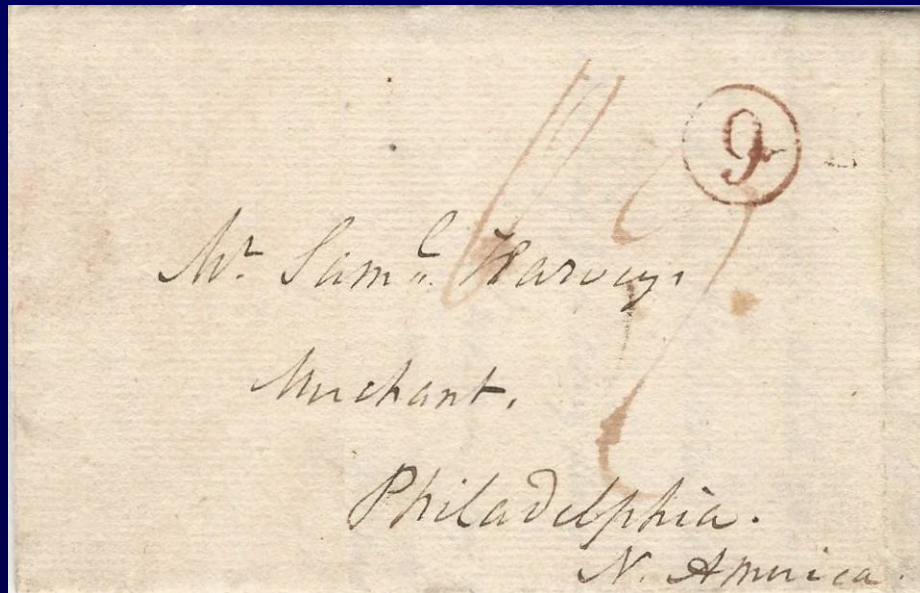 9
Mr. Saml. Harvey.
Merchant.
Philadelphia.
N. America.